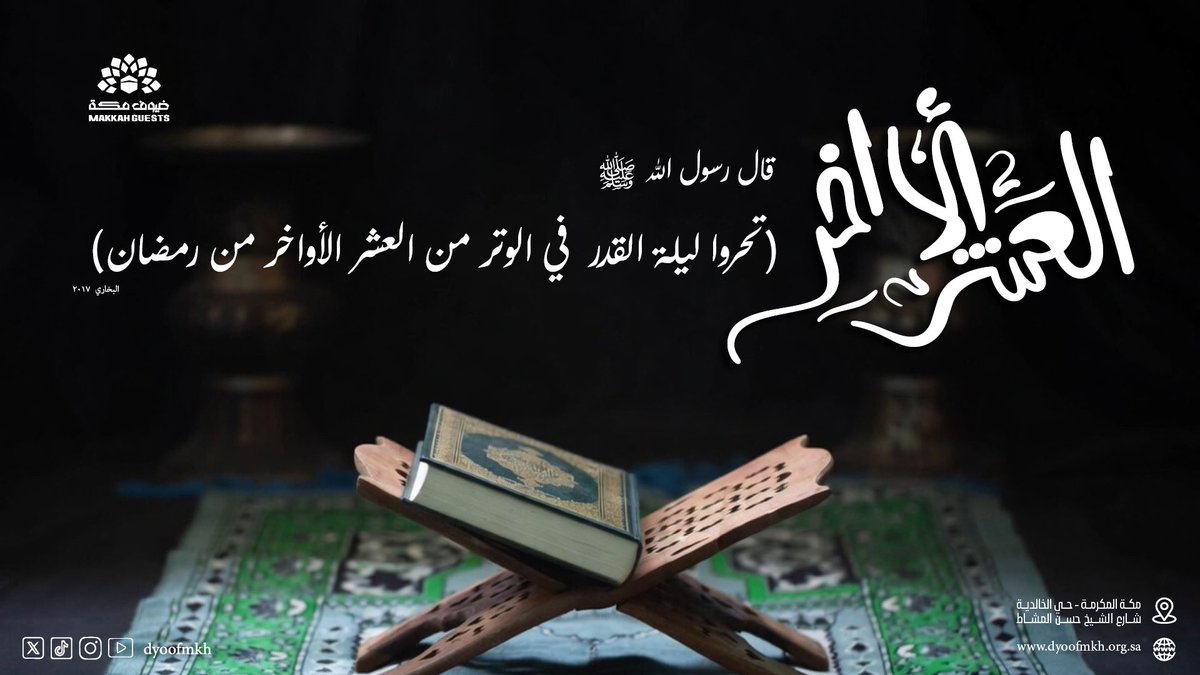 ضيوف مكة
MAKKAH GUESTS
العشر الأواخر
قال رسول الله ﷺ
(تحروا ليلة القدر في الوتر من العشر الأواخر من رمضان)
البخاري ٢٠١٧
مكة المكرمة - حي الخالدية
شارع الشيخ حسن المشاط
www.dyoofmkh.org.sa
dyoofmkh